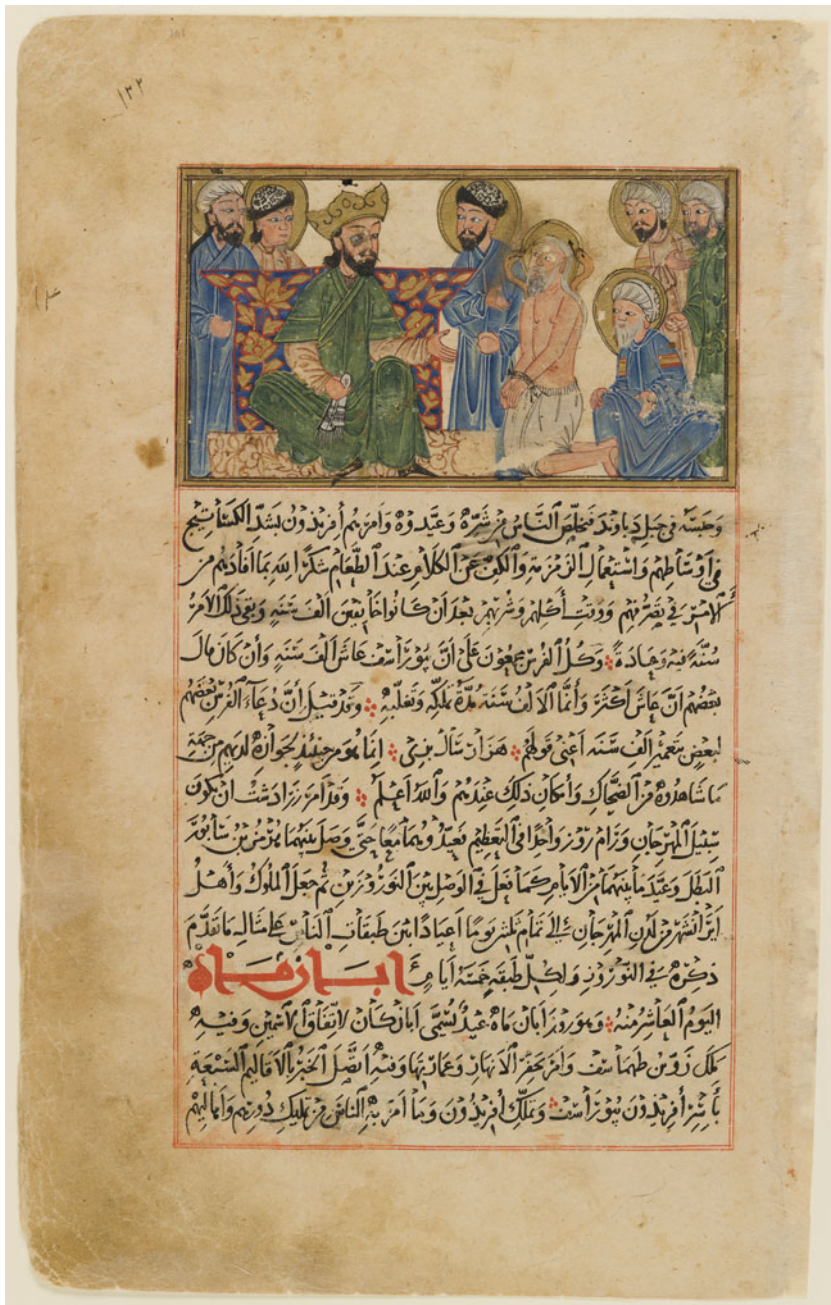 ١٣٢
وَحَبَسَه فى جبل دباوند فتخلّص الناس من شرّه وعيّدوه وامرهم أفريذون بشدّ الكستيج
فى أوساطهم واستعمال الزمزمة والكفّ عن الكلام عند الطعام شكرًا لله بما افادهم من
الامر فى تصرّفهم ووقت أكلهم وشربهم بعد ان كانوا خائفين الف سنه وبقى ذلك الامر
سنّة فيه وعادة وكلّ الفرس مجمعون على أنّ بيوراسف عاش الف سنه وأن كان قال
بعضهم انّه عاش أكثر وأنّما الالف سنة مدّة ملكه وتغلّبه وقد قيل أنّ دعاء الفرس بعضهم
لبعض بتعمير الف سنه أعنى قولهم هزار سال بزى انّما هو من حينئذٍ لجوازه لديهم من جهة
ما شاهدوه من الضحّاك وأمكان ذلك عندهم والله أعلم وقد امر زرادشت ان يكون
سبيل المهرجان ورام روز واحدًا فى التعظيم فعيّدوهما معًا حتّى وصل بينهما هرمز بن سابور
البطل وعيّد ما بينهما من الايام كما فعل فى الوصل بين النوروزين ثمّ جعل الملوك وأهل
ايرانشهر من لدن المهرجان الى تمام ثلثين يومًا أعيادًا بين طبقات الناس على مثال ما تقدّم
ذكره فى النوروز ولكلّ طبقه خمسة ايام ابان ماه
اليوم العاشر منه وهو روز أبان ماه عيد يسمّى ابانكان لاتفاق الاسمين وفيه
ملك زوّ بن طهماسف وامر بحفر الانهار وعمارتها وفيه اتّصل الخبر بالاقاليم السبعة
بأسر أفريذون بيوراسف وتملّك أفريذون وبما امر به الناس من تمليك دورهم وأهاليهم